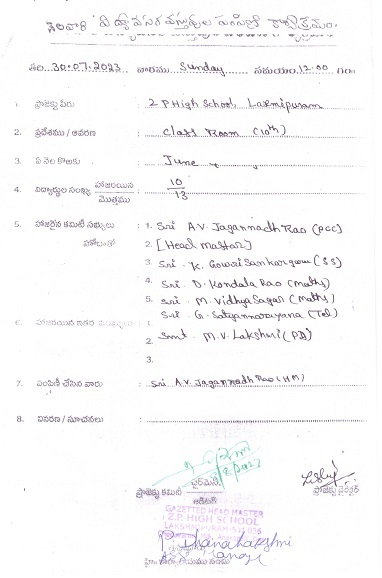 నెలవారి విద్యావసర వస్తువుల పంపిణీ కార్యక్రమం.
తేది. 30.07.2023 వారము Sunday సమయం. 12.00 గం॥
1. ప్రాజెక్టు పేరు : 2 P High School, Laxmipuram
2. ప్రదేశము / ఆవరణ : Class Room (10th)
3. ఏ నెల కొఱకు : June
4. విద్యార్థుల సంఖ్య హాజరయిన / మొత్తము : 10 / 13
5. హాజరైన కమిటీ సభ్యులు : 1. Sri A.V. Jagannadh Rao (PCC)
హోదాతో 2. [Head Master]
3. Sri. K. Gowri Sankarguru (SS)
4. Sri D. Kondala Rao (Maths)
5. Sri. M. Vidhya Sagar (Maths)
6. హాజరయిన ఇతర : 1. Sri G. Satyannarayana (Tel)
2. Smt. M.V. Lakshmi (PD)
3.
7. పంపిణీ చేసిన వారు : Sri A.V. Jagannadh Rao (HM)
8. వివరణ / సూచనలు :
ప్రాజెక్టు కమిటీ ఛైర్మెన్ ప్రాజెక్టు డైరెక్టర్
GAZETTED HEAD MASTER
Z.P. HIGH SCHOOL